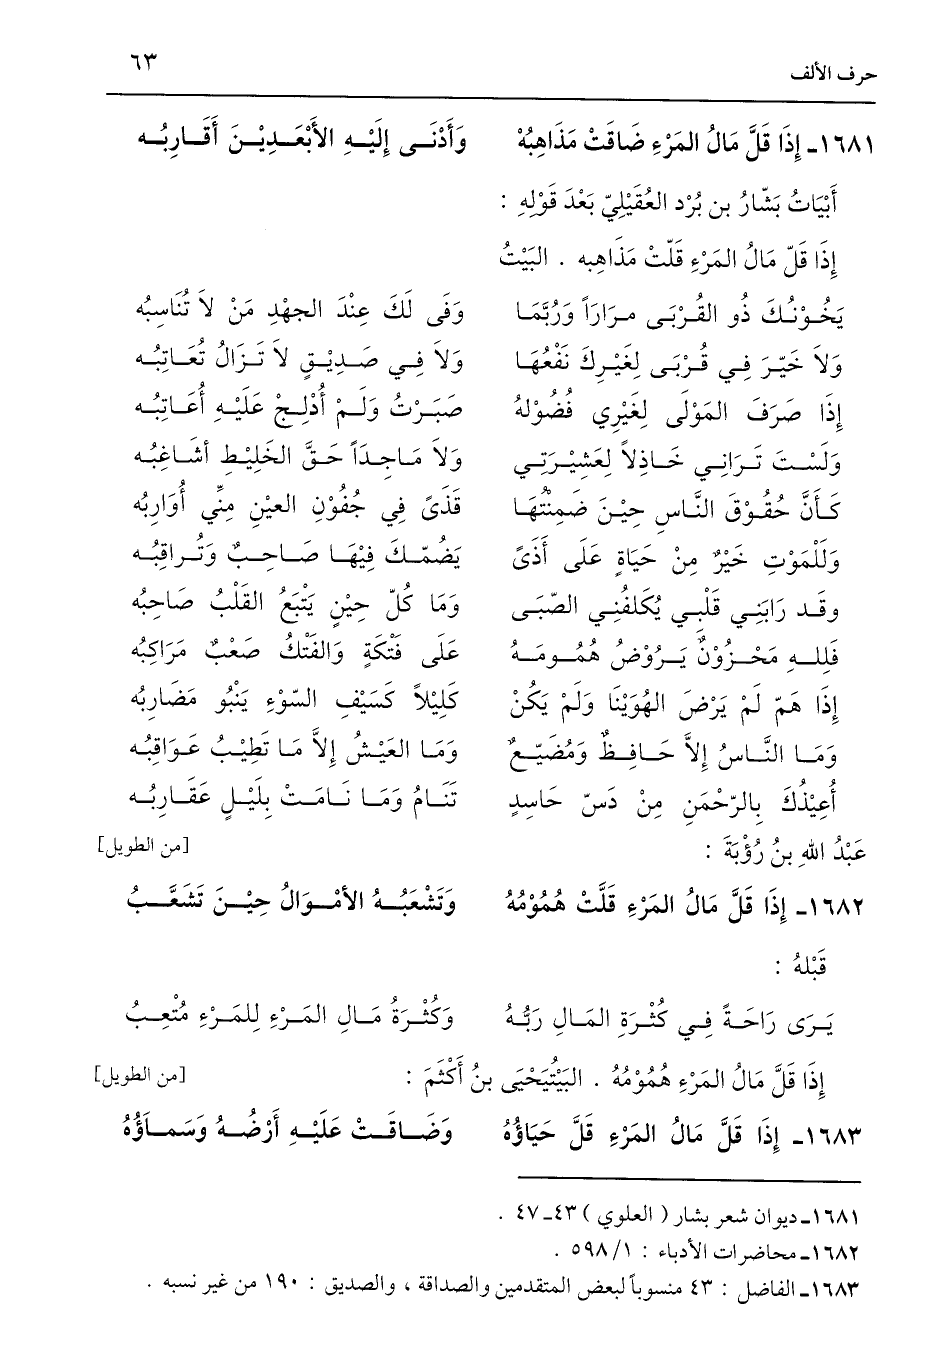 حرف الألف ٦٣
١٦٨١ـ إِذَا قَلَّ مَالُ المَرْءِ ضَاقَتْ مَذَاهِبُهْ وَأَدْنَـى إِلَيْـهِ الأَبْعَـدِيْـنَ أَقَـارِبُـه
أَبْيَاتُ بَشّارُ بن بُرْد العُقَيْلِيّ بَعْدَ قَوْلِهِ :
إِذَا قَلّ مَالُ المَرْءِ قَلّتْ مَذَاهبه . البَيْتُ
يَخُـوْنُـكَ ذُو القُـرْبَـى مِـرَاراً وَرُبَّمَـا وَفَى لَكَ عِنْدَ الجهْدِ مَنْ لاَ تُنَاسِبُه
وَلاَ خَيْـرَ فِـي قُـرْبَـى لِغَيْـرِكَ نَفْعُهَـا وَلاَ فِـي صَـدِيْـقٍ لاَ تَـزَالُ تُعَـاتِبُـه
إِذَا صَرَفَ المَوْلَى لِغَيْرِي فُضُوْلهُ صَبَـرْتُ وَلَـمْ أُدْلِـجْ عَلَيْـهِ أُعَـاتِبُـه
وَلَسْـتَ تَـرَانِـي خَـاذِلاً لِعَشِيْـرَتِـي وَلاَ مَـاجِـدَاً حَـقَّ الخَلِيْـطِ أشَـاغِبُـه
كَـأَنَّ حُقُـوْقَ النَّـاسِ حِيْـنَ ضَمِنْتُهَـا قَذَىً فِي جُفُوْنِ العَيْنِ مِنِّي أُوَارِبُه
وَلَلْمَوْتِ خَيْرٌ مِنْ حَيَاةٍ عَلَى أَذَىً يَضُمّـكَ فِيْهَـا صَـاحِـبٌ وَتُـرَاقِبُـه
وقَـد رَابَنِـي قَلْبِـي يُكَلفُنِـي الصِّبَـى وَمَا كُلّ حِيْنٍ يَتْبَعُ القَلْبُ صَاحِبُه
فَلِلـهِ مَحْـزُوْنٌ يَـرُوْضُ هُمُـومَـهُ عَلَى فَتْكَةٍ وَالفَتْكُ صَعْبٌ مَرَاكِبُه
إِذَا هَمّ لَمْ يَرْضَ الهُوَيْنَا وَلَمْ يَكُنْ كَلِيْلاً كَسَيْفِ السّوْءِ يَنْبُو مَضَارِبُه
وَمَـا النَّـاسُ إلاَّ حَـافِـظٌ وَمُضَيّـعٌ وَمَا العَيْشُ إِلاَّ مَا تَطِيْبُ عَوَاقِبُه
أُعِيْذُكَ بِالرّحْمَنِ مِنْ دَسّ حَاسِدٍ تَنَـامُ وَمَـا نَـامَـتْ بِلَيْـلٍ عَقَـارِبُـه
عَبْدُ اللهِ بنُ رُؤْبَةَ : [من الطويل]
١٦٨٢ـ إِذَا قَلَّ مَالُ المَرْءِ قَلَّتْ هُمُوْمُهُ وَتَشْعَبُـهُ الأَمْـوَالُ حِيْـنَ تَشَعَّـبُ
قَبْلهُ :
يَـرَى رَاحَـةً فِـي كُثْـرَةِ المَـالِ رَبُّـهُ وَكُثْـرَةُ مَـالِ المَـرْءِ لِلمَـرْءِ مُتْعِـبُ
إِذَا قَلَّ مَالُ المَرْءِ هُمُوْمُهُ . البَيْتُيَحْيَى بنُ أَكْثَمَ : [من الطويل]
١٦٨٣ـ إِذَا قَلَّ مَالُ المَرْءِ قَلَّ حَيَاؤُهُ وَضَـاقَـتْ عَلَيْـهِ أَرْضُـهُ وَسَمَـاؤُهُ
١٦٨١ـ ديوان شعر بشار ( العلوي ) ٤٣ـ٤٧ .
١٦٨٢ـ محاضرات الأدباء : ١/ ٥٩٨ .
١٦٨٣ـ الفاضل : ٤٣ منسوباً لبعض المتقدمين والصداقة ، والصديق : ١٩٠ من غير نسبه .